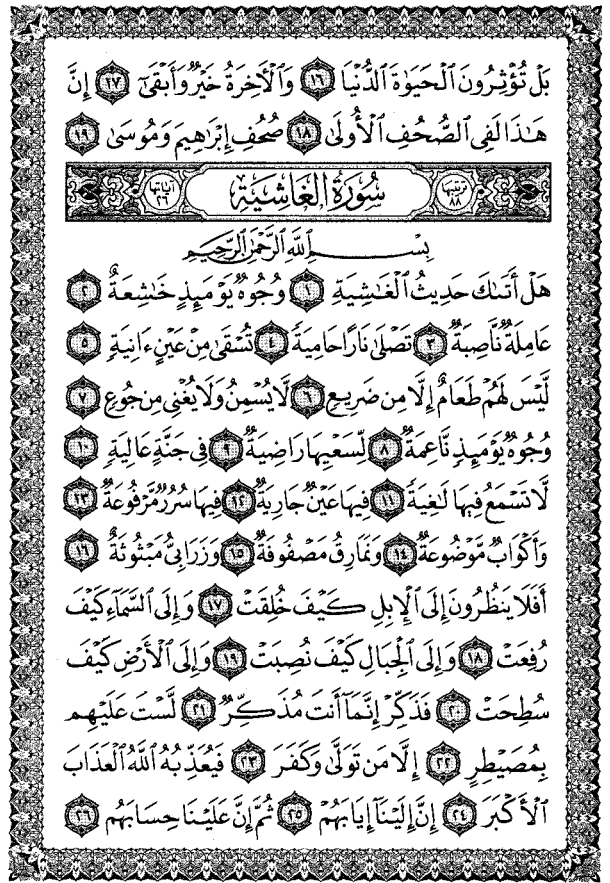 بَلْ تُؤْثِرُونَ الْحَيَوٰةَ الدُّنْيَا ١٦ وَالْأَخِرَةُ خَيْرٌ وَأَبْقَىٰ ١٧ إِنَّ
هَٰذَا لَفِى الصُّحُفِ الْأُولَىٰ ١٨ صُحُفِ إِبْرَاهِيمَ وَمُوسَىٰ ١٩
ترتيبها ٨٨ سُورَةُ الغَاشِيَةِ آياتها ٢٦
بِسْمِ اللَّهِ الرَّحْمَٰنِ الرَّحِيمِ
هَلْ أَتَىٰكَ حَدِيثُ الْغَٰشِيَةِ ١ وُجُوهٌ يَوْمَئِذٍ خَٰشِعَةٌ ٢
عَامِلَةٌ نَّاصِبَةٌ ٣ تَصْلَىٰ نَارًا حَامِيَةً ٤ تُسْقَىٰ مِنْ عَيْنٍ ءَانِيَةٍ ٥
لَّيْسَ لَهُمْ طَعَامٌ إِلَّا مِن ضَرِيعٍ ٦ لَّا يُسْمِنُ وَلَا يُغْنِى مِن جُوعٍ ٧
وُجُوهٌ يَوْمَئِذٍ نَّاعِمَةٌ ٨ لِّسَعْيِهَا رَاضِيَةٌ ٩ فِى جَنَّةٍ عَالِيَةٍ ١٠
لَّا تَسْمَعُ فِيهَا لَٰغِيَةً ١١ فِيهَا عَيْنٌ جَارِيَةٌ ١٢ فِيهَا سُرُرٌ مَّرْفُوعَةٌ ١٣
وَأَكْوَابٌ مَّوْضُوعَةٌ ١٤ وَنَمَارِقُ مَصْفُوفَةٌ ١٥ وَزَرَابِىُّ مَبْثُوثَةٌ ١٦
أَفَلَا يَنظُرُونَ إِلَى الْإِبِلِ كَيْفَ خُلِقَتْ ١٧ وَإِلَى السَّمَآءِ كَيْفَ
رُفِعَتْ ١٨ وَإِلَى الْجِبَالِ كَيْفَ نُصِبَتْ ١٩ وَإِلَى الْأَرْضِ كَيْفَ
سُطِحَتْ ٢٠ فَذَكِّرْ إِنَّمَآ أَنتَ مُذَكِّرٌ ٢١ لَّسْتَ عَلَيْهِم
بِمُصَيْطِرٍ ٢٢ إِلَّا مَن تَوَلَّىٰ وَكَفَرَ ٢٣ فَيُعَذِّبُهُ اللَّهُ الْعَذَابَ
الْأَكْبَرَ ٢٤ إِنَّ إِلَيْنَآ إِيَابَهُمْ ٢٥ ثُمَّ إِنَّ عَلَيْنَا حِسَابَهُم ٢٦